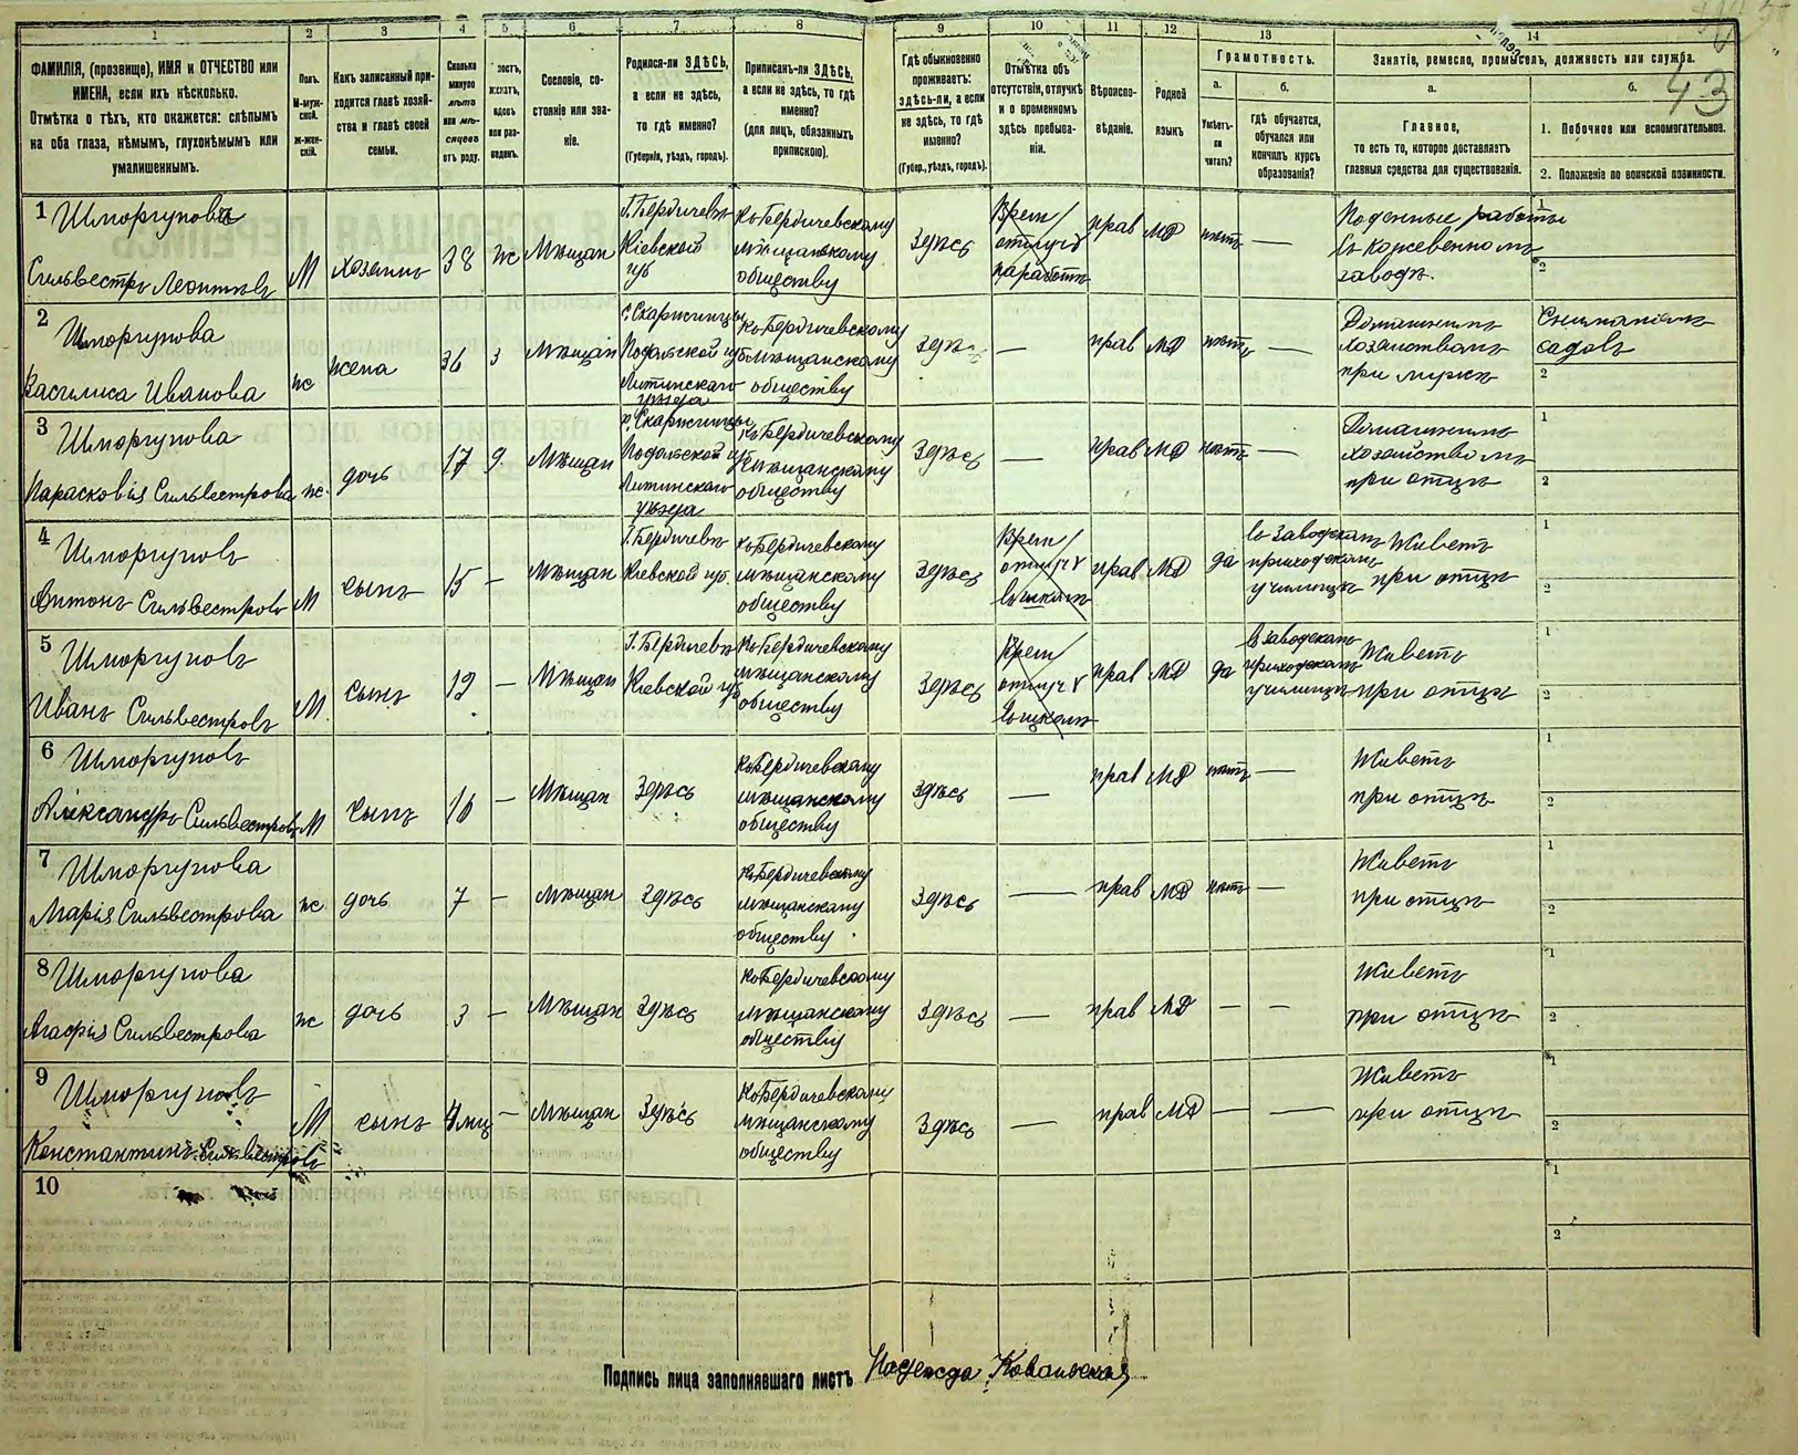 43
1 2 3 4 5 6 7 8 9 10 11 12 13 14
ФАМИЛІЯ, (прозвище), ИМЯ и ОТЧЕСТВО или
ИМЕНА, если ихъ нѣсколько.
Отмѣтка о тѣхъ, кто окажется: слѣпымъ
на оба глаза, нѣмымъ, глухонѣмымъ или
умалишеннымъ.
Полъ.
М-муж-
ской.
Ж-жен-
скій.
Какъ записанный при-
ходится главѣ хозяй-
ства и главѣ своей
семьи.
Сколько
минуло
лѣтъ
или мѣ-
сяцевъ
отъ роду.
вдовъ
или раз-
веденъ.
Сословіе, со-
стояніе или зва-
ніе.
Родился-ли ЗДѢСЬ,
а если не здѣсь,
то гдѣ именно?
(Губернія, уѣздъ, городъ).
Приписанъ-ли ЗДѢСЬ,
а если не здѣсь, то гдѣ
именно?
(для лицъ, обязанныхъ
припискою).
Гдѣ обыкновенно
проживаетъ:
здѣсь-ли, а если
не здѣсь, то гдѣ
именно?
(Губер., уѣздъ, городъ).
Отмѣтка объ
отсутствіи, отлучкѣ
и о временномъ
здѣсь пребыва-
ніи.
Вѣроиспо-
вѣданіе.
Родной
языкъ.
Грамотность.
а.
Умѣетъ-
ли
читать?
б.
Гдѣ обучается,
обучался или
кончилъ курсъ
образованія?
Занятіе, ремесло, промыселъ, должность или служба.
а.
Главное,
то есть то, которое доставляетъ
главныя средства для существованія.
б.
1. Побочное или вспомогательное.
2. Положеніе по воинской повинности.
1 Шморгуновъ
Сильвестръ Леонтьевъ
М
хозяинъ
38
ж
Мѣщан
Г. Бердичевъ
Кіевской
губ
Къ Бердичевскому
мѣщанскому
обществу
Здѣсь
Врем
отлуч
прав
МР
нѣтъ
—
Поденные работы
въ кожевенномъ
заводѣ.
1
2
2 Шморгунова
Василиса Иванова
ж
жена
36
З
Мѣщан
с. Скаржинцы
Подольской губ
Литинскаго
уѣзда
Къ Бердичевскому
мѣщанскому
обществу
Здѣсь
—
прав
МР
нѣтъ
—
Домашнимъ
хозяйствомъ
при мужѣ
садовъ
2
3 Шморгунова
Парасковія Сильвестрова
ж
дочь
17
9
Мѣщан
с. Скаржинцы
Подольской губ
Литинскаго
уѣзда
Къ Бердичевскому
мѣщанскому
обществу
Здѣсь
—
прав
МР
нѣтъ
—
Домашнимъ
хозяйствомъ
при отцѣ
1
2
4 Шморгуновъ
Антонъ Сильвестровъ
М
сынъ
15
—
Мѣщан
Г. Бердичевъ
Кіевской губ.
Къ Бердичевскому
мѣщанскому
обществу
Здѣсь
Врем
отлуч
въ школѣ
прав
МР
да
въ Заводскомъ
приходскомъ
училищѣ
Живетъ
при отцѣ
1
2
5 Шморгуновъ
Иванъ Сильвестровъ
М
сынъ
12
—
Мѣщан
Г. Бердичевъ
Кіевской губ
Къ Бердичевскому
мѣщанскому
обществу
Здѣсь
Врем
отлуч
въ школѣ
прав
МР
да
въ заводскомъ
приходскомъ
училищѣ
Живетъ
при отцѣ
1
2
6 Шморгуновъ
Александръ Сильвестровъ
М
сынъ
—
Мѣщан
Здѣсь
Къ Бердичевскому
мѣщанскому
обществу
Здѣсь
—
прав
МР
нѣтъ
—
Живетъ
при отцѣ
1
2
7 Шморгунова
Марія Сильвестрова
ж
дочь
7
—
Мѣщан
Здѣсь
Къ Бердичевскому
мѣщанскому
обществу
Здѣсь
—
прав
МР
нѣтъ
—
Живетъ
при отцѣ
1
2
8 Шморгунова
Агафія Сильвестрова
ж
дочь
3
—
Мѣщан
Здѣсь
Къ Бердичевскому
мѣщанскому
обществу
Здѣсь
—
прав
МР
—
—
Живетъ
при отцѣ
1
2
9 Шморгуновъ
Константинъ Сильвестровъ
М
сынъ
4 мц
—
Мѣщан
Здѣсь
Къ Бердичевскому
мѣщанскому
обществу
Здѣсь
—
прав
МР
—
—
Живетъ
при отцѣ
1
2
10
1
2
Подпись лица заполнявшаго листъ Надежда Ковальская